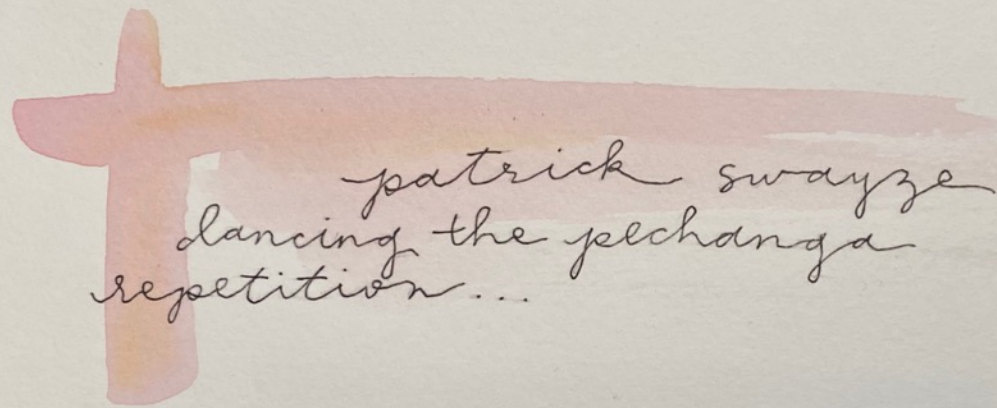 patrick swayze
dancing the pechanga
repetition...